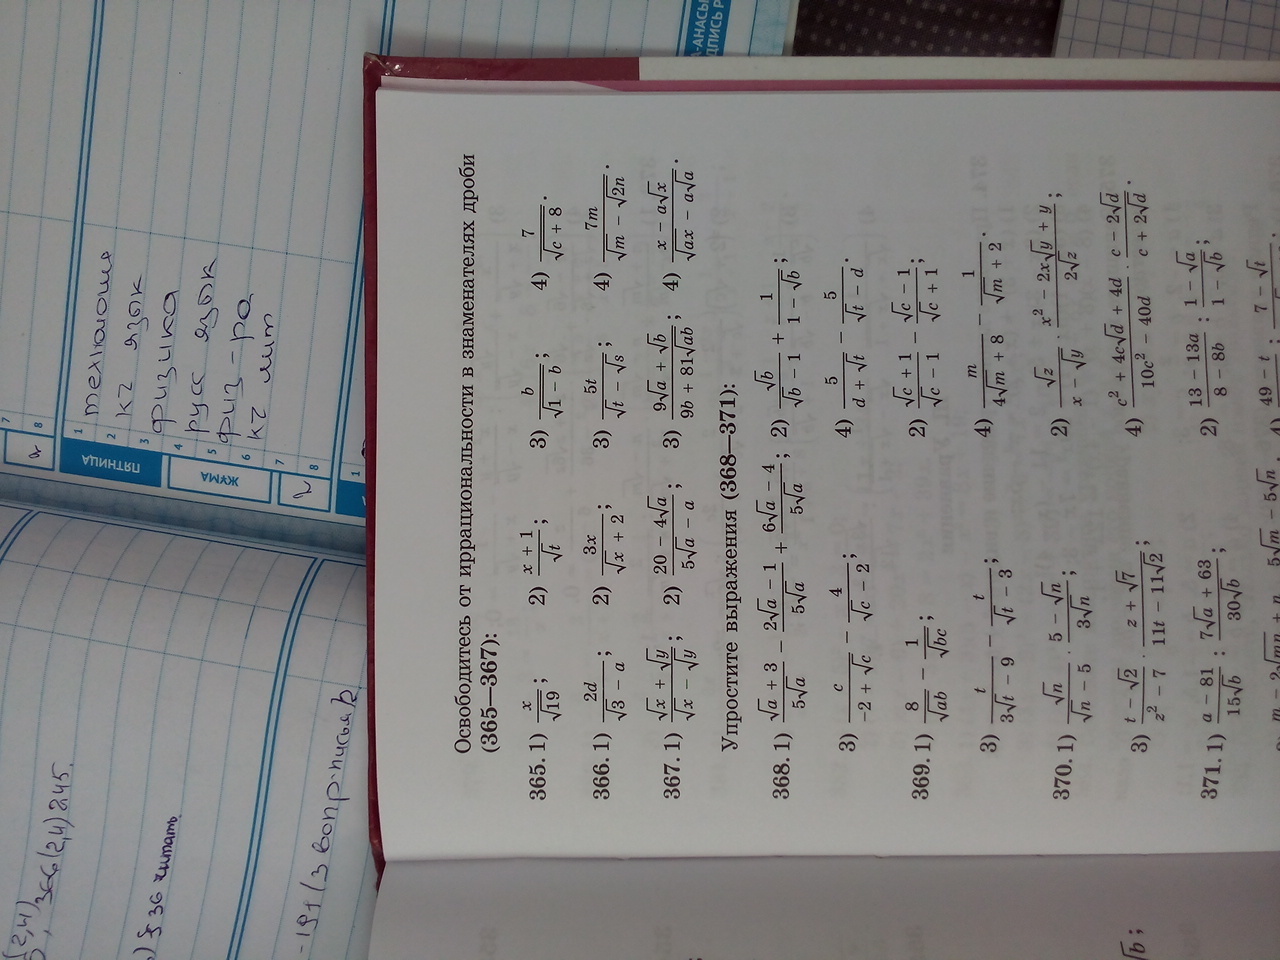 Освободитесь от иррациональности в знаменателях дроби
(365—367):
365. 1) x/√19; 2) (x + 1)/√t; 3) b/√(1 − b); 4) 7/√(c + 8).
366. 1) 2d/(√3 − a); 2) 3x/(√x + 2); 3) 5t/(√t − √s); 4) 7m/(√m − √2n).
367. 1) (√x + √y)/(√x − √y); 2) (20 − 4√a)/(5√a − a); 3) (9√a + √b)/(9b + 81√ab); 4) (x − a√x)/(√ax − a√a).
Упростите выражения (368—371):
368. 1) (√a + 3)/5√a − (2√a − 1)/5√a + (6√a − 4)/5√a; 2) √b/(√b − 1) + 1/(1 − √b);
3) c/(−2 + √c) − 4/(√c − 2); 4) 5/(d + √t) − 5/(√t − d).
369. 1) 8/√ab − 1/√bc; 2) (√c + 1)/(√c − 1) − (√c − 1)/(√c + 1);
3) t/(3√t − 9) − t/(√t − 3); 4) m/(4√m + 8) − 1/(√m + 2).
370. 1) √n/(√n − 5) · (5 − √n)/3√n; 2) √z/(x − √y) · (x² − 2x√y + y)/2√z;
3) (t − √2)/(z² − 7) · (z + √7)/(11t − 11√2); 4) (c² + 4c√d + 4d)/(10c² − 40d) · (c − 2√d)/(c + 2√d).
371. 1) (a − 81)/15√b : (7√a + 63)/30√b; 2) (13 − 13a)/(8 − 8b) : (1 − √a)/(1 − √b);
5√m − 5√n 4) 49 − t : 7 − √t
√b;
ПЯТНИЦА
ЖҰМА
1 технология
2 кг язык
3 физика
4 русс язык
5 физ-ра
6 кг лит
7
8
§ 36 читать